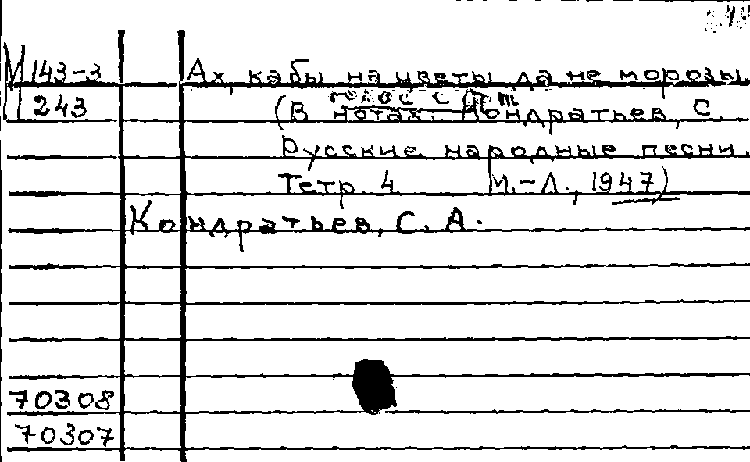 М 143-3 Ах, кабы на цветы да не морозы
243 голос с фп
(В нотах: Кондратьев, С.
Русские народные песни.
Тетр. 4 М.-Л., 1947)
Кондратьев, С. А.
70308
70307